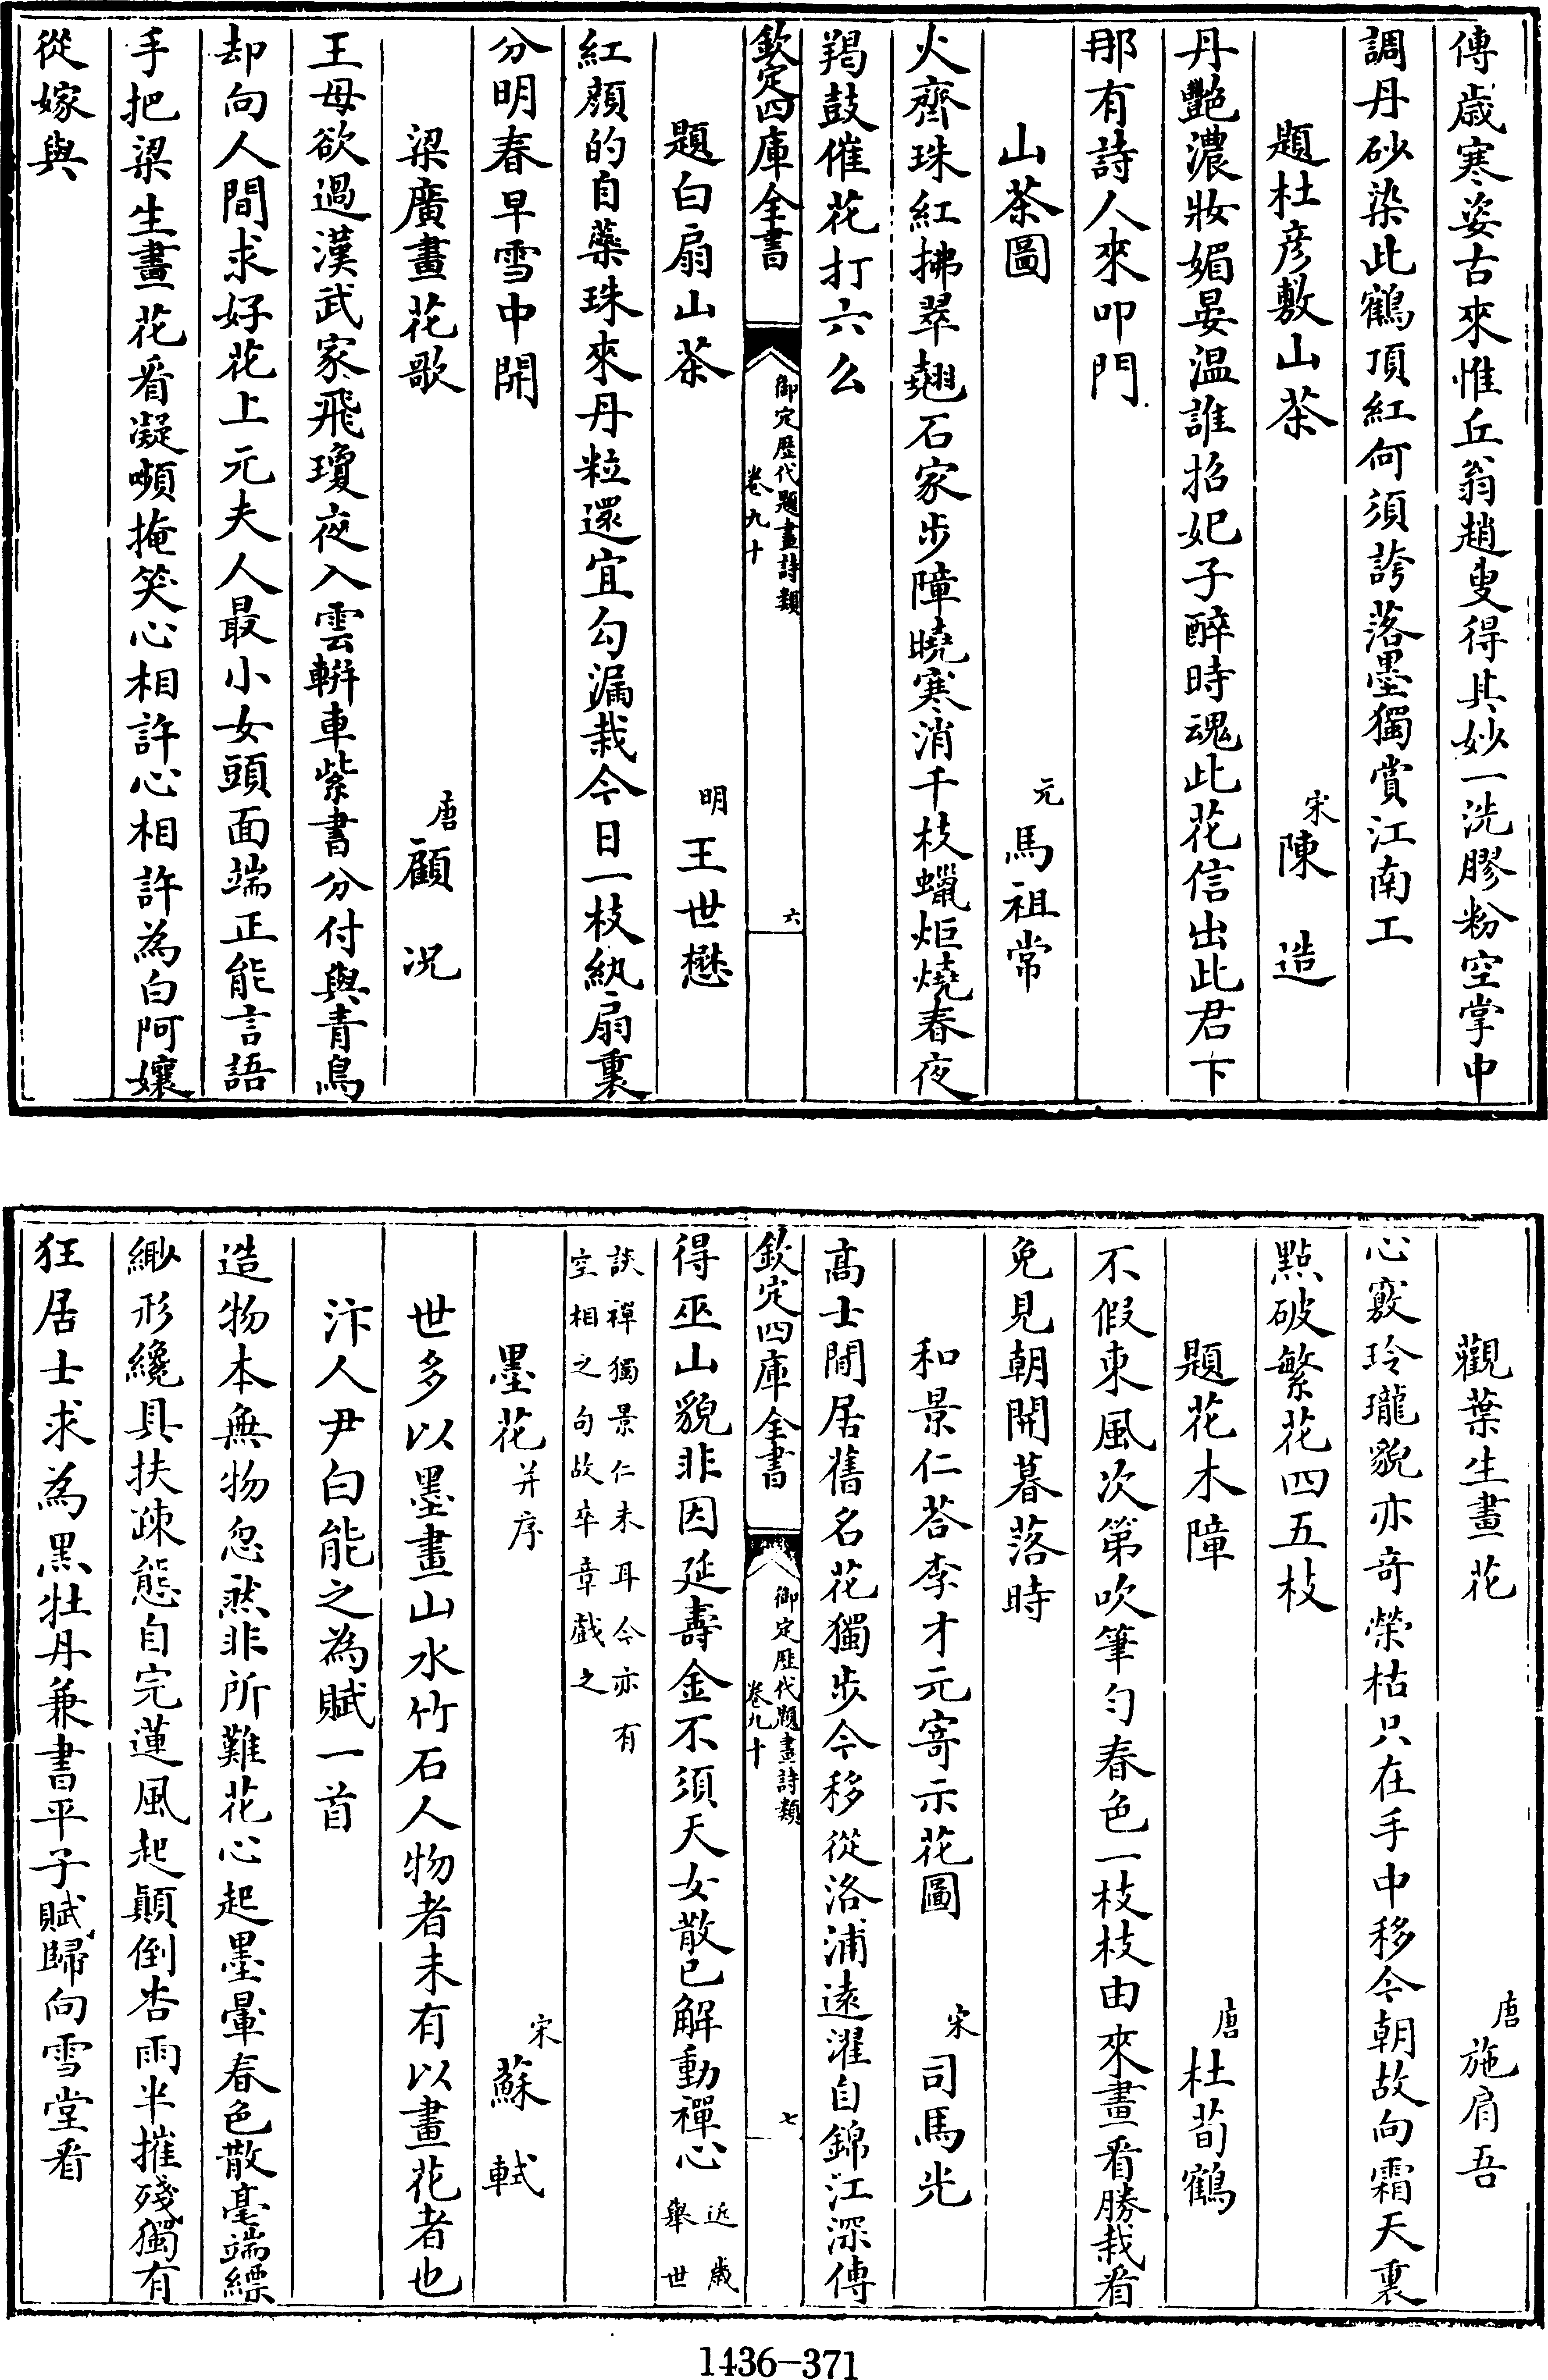 傳歲寒姿古來惟丘翁趙叟得其妙一洗膠粉空掌中
調丹砂染此鶴頂紅何須誇落墨獨賞江南工
題杜彦敷山茶 宋陳造
丹艷濃妝媚晏温誰招妃子醉時魂此花信出此君下
那有詩人來叩門
山茶圖 元馬祖常
火齊珠紅拂翠翹石家步障曉寒消千枝蠟炬燒春夜
羯鼓催花打六么
欽定四庫全書 御定歷代題畫詩類 卷九十 六
題白扇山茶 明王世懋
紅顔的自蘂珠來丹粒還宜勾漏栽今日一枝紈扇裏
分明春早雪中開
梁廣畫花歌 唐顧况
王母欲過漢武家飛瓊夜入雲軿車紫書分付與青鳥
却向人間求好花上元夫人最小女頭面端正能言語
手把梁生畫花看凝嚬掩笑心相許心相許為白阿孃
從嫁與
觀葉生畫花 唐施肩吾
心竅玲瓏貌亦奇榮枯只在手中移今朝故向霜天裏
點破繁花四五枝
題花木障 唐杜荀鶴
不假東風次第吹筆匀春色一枝枝由來畫看勝栽看
免見朝開暮落時
和景仁答李才元寄示花圖 宋司馬光
高士閒居舊名花獨步今移從洛浦遠濯自錦江深傳
欽定四庫全書 御定歷代題畫詩類 卷九十 七
得巫山貌非因延壽金不須天女散已解動禪心 近歲舉世
談禪獨景仁未耳今亦有
空相之句故卒章戲之
墨花 并序 宋蘇軾
世多以墨畫山水竹石人物者未有以畫花者也
汴人尹白能之為賦一首
造物本無物忽然非所難花心起墨暈春色散毫端縹
緲形纔具扶疎態自完蓮風起顛倒杏雨半摧殘獨有
狂居士求為黑牡丹兼書平子賦歸向雪堂看
1436-371